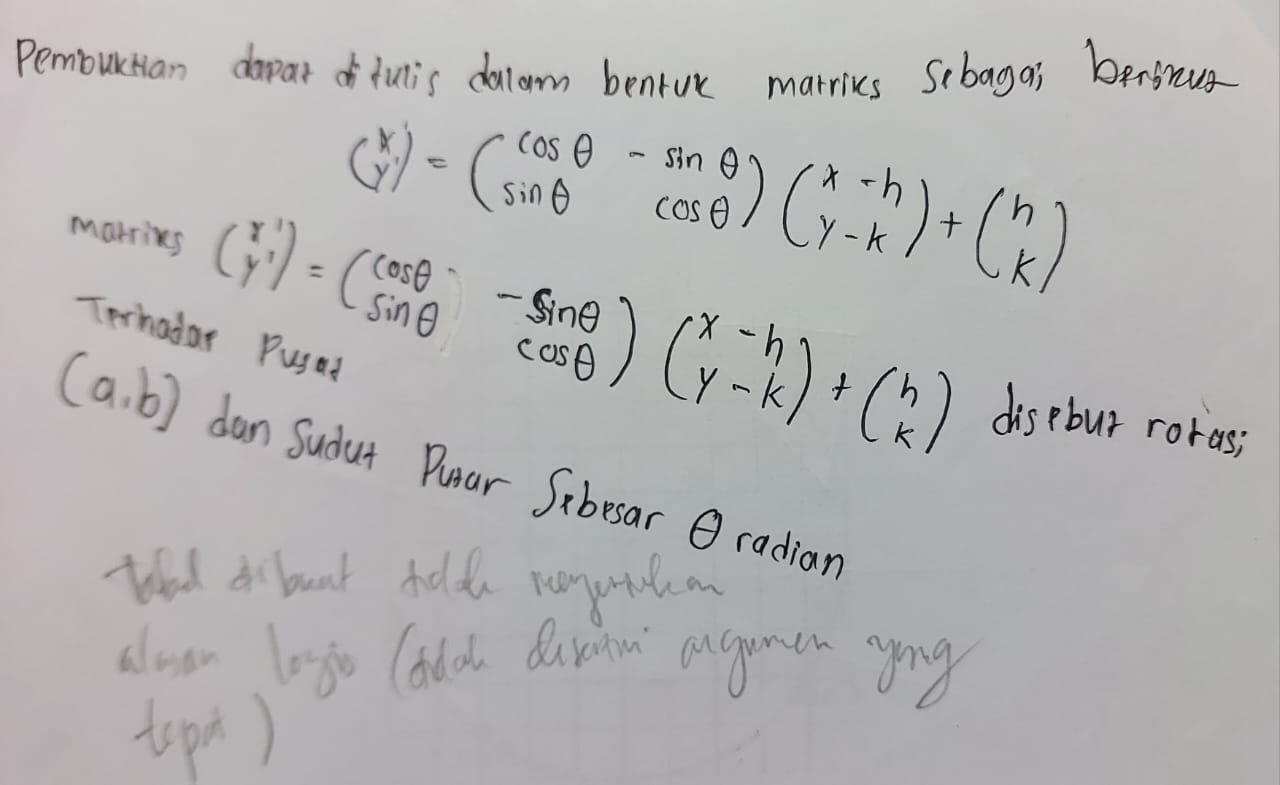 Pembuktian dapat ditulis dalam bentuk matriks sebagai berikut
(x' y') = (cos θ - sin θ sin θ cos θ) (x - h y - k) + (h k)
matriks (x' y') = (cos θ - sin θ sin θ cos θ) (x - h y - k) + (h k) disebut rotasi
Terhadap Pusat
(a.b) dan Sudut Putar Sebesar θ radian
dibuat tidak
alasan (tidak disertai argumen yang
tepat)